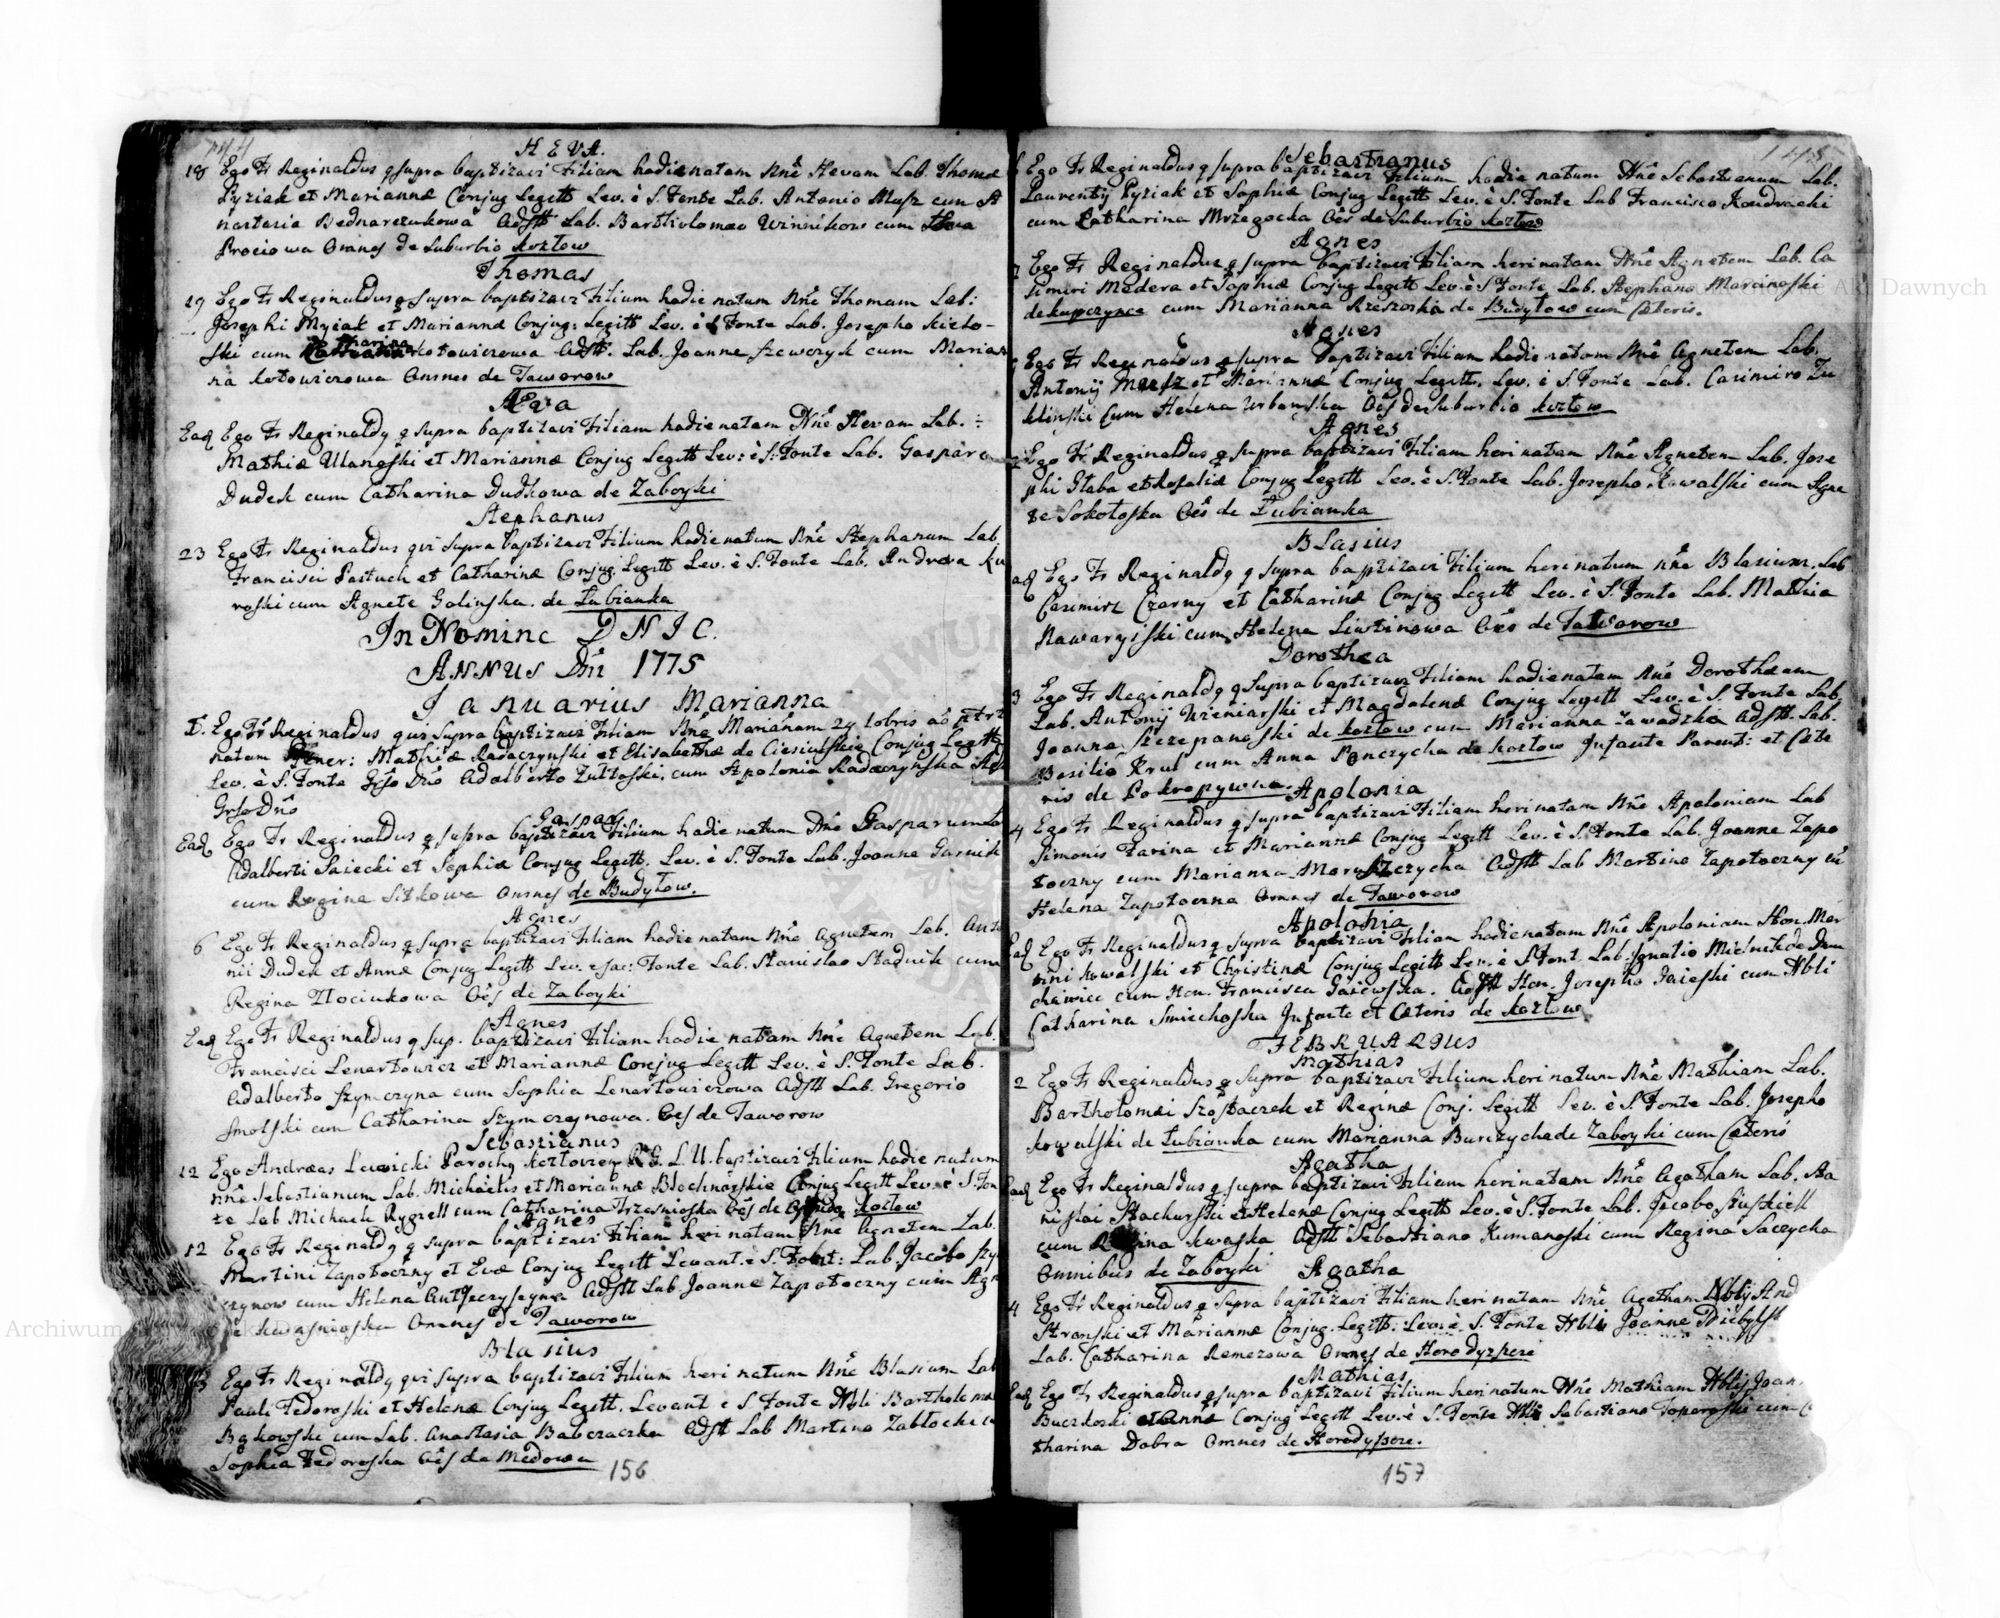 144
HEVA.
18 Ego Fr Reginaldus q supra baptizavi Filiam hodie natam Nnê Hevam Lab. Thomæ
Pyziak et Mariannæ Conjug Legitt Lev. è S. Fonte Lab. Antonio Musz cum A
nastasia Bednarczukowa Adstt Lab. Bartholomæo Winnikow cum
Prociowa Omnes de Suburbio Kozłow
Thomas
19 Ego Fr Reginaldus q supra baptizavi Filium hodie natum Nnê Thomam Lab:
Josephi Myiak et Mariannæ Conjug: Legitt Lev. è S Fonte Lab. Josepho
ski cum Kotowiczowa Adstt. Lab. Joanne Szewczyk cum Marian
na Kotowiczowa Omnes de Taworow
Heva
Ead Ego Fr Reginaldq q supra baptizavi Filiam hodie natam Nnê Hevam Lab.
Mathiæ Ulanoski et Mariannæ Conjug Legitt Lev: è S: Fonte Lab. Gasparo
Dudek cum Catharina Dudkowa de Zaboyki
Stephanus
23 Ego Fr Reginaldus qui supra baptizavi Filium hodie natum Nnê Stephanum Lab
Francisci Pastuch et Catharinæ Conjug. Legitt Lev. è S. Fonte Lab. Andrea Ku
roski cum Agnete Golinska. de Łubianka
In Nomine D N J C.
ANNUS Dni 1775
Januarius Marianna
1. Ego Fr Reginaldus qui supra baptizavi Filiam Nnê Mariañam 24 10bris
natam Gener: Mathiæ Radaczynski et Elisabethæ de Ciesielskie Conjug Legitt
Lev. è S. Fonte Gnso Dno Adalberto Zultoski, cum Apolonia Radaczynska
Gnso Dno
Gaspar
Ead Ego Fr Reginaldus q supra baptizavi Filium hodie natum Nnê Gasparum
Adalberti Saiecki et Sophiæ Conjug Legitt. Lev. è S. Fonte Lab. Joanne Garnik
cum Regina Sitkowa Omnes de Budyłow.
Agnes
6 Ego Fr Reginaldus q supra baptizavi Filiam hodie natam Nnê Agnetem Lab. Anto
nii Dudek et Annæ Conjug Legitt Lev. e sac: Fonte Lab. Stanislao Stadnik cum
Regina Złociukowa Oẽs de Zaboyki
Agnes
Ead Ego Fr Reginaldus q sup. baptizavi Filiam hodie natam Nnê Agnetem Lab.
Francisci Lenartowicz et Mariannæ Conjug Legitt Lev. è S. Fonte Lab.
Adalberto Szymczyna cum Sophia Lenartowiczowa Adstt Lab. Gregorio
Smolski cum Catharina Szymczynowa. Oẽs de Taworow
Sebastianus
12 Ego Andreas Lewicki Parochq Kozłovien R G. L U. baptizavi Filium hodie natum
nnê Sebastianum Lab. Michaelis et Mariannæ Blochnarskie Conjug Legitt Lev. è S. Fon
te Lab Michaele Rygiell cum Catharina Trzesnioska Oẽs de Kozłow
Agnes
12 Ego Fr Reginaldq q supra baptizavi Filiam heri natam Nnê Agnetem Lab.
Martini Zapotoczny et Evæ Conjug Legitt Levant. è S. Font: Lab. Jacobo Szy
czynow cum Helena Adstt Lab Joanne Zapotoczny cum Agn
Kwasnioska Omnes de Taworow
Blasius
13 Ego Fr Reginaldq qui supra baptizavi Filium heri natum Nnê Blasium Lab
Pauli Fedoroski et Helenæ Conjug Legitt. Levant è S Fonte Nbli Bartholomæo
Bąkowski cum Lab. Anastasia Babczaczka Adstt Lab Martino Zabłocki
Sophia Fedoroska Oẽs de Medowa
156
145
Sebastianus
Ego Fr Reginaldus q supra baptizavi Filium hodie natum Nnê Sebastianum Lab.
Laurentij Pyziak et Sophiæ Conjug Legitt Lev. è S. Fonte Lab Francisco Kondracki
cum Catharina Mrzegocka Oẽs de Suburbio Kozłow
Agnes
Ego Fr Reginaldus q supra baptizavi Filiam heri natam Nnê Agnetem Lab. Ca
simiri Madera et Sophiæ Conjug Legitt Lev. è S Fonte Lab. Stephano Marcinoski
de Kupczynce cum Marianna Rzeszoska de Budyłow cum Cæteris.
Agnes
Ego Fr Reginaldus q supra baptizavi Filiam hodie natam Nnê Agnetem Lab.
Antonij Musz et Mariannæ Conjug Legitt. Lev. è S. Fonte Lab. Casimiro Zu
klinski cum Helena Urbanska Oẽs de Suburbio Kozłow
Agnes
Ego Fr. Reginaldus q supra baptizavi Filiam heri natam Nnê Agnetem Lab. Jose
phi Staba et Rosaliæ Conjug Legitt Lev. è S. Fonte Lab. Josepho Kowalski cum Agne
te Sokołoska Oẽs de Łubianka
Blasius
Ead Ego Fr Reginaldq q supra baptizavi Filium heri natum Nnê Blasium. Lab
Casimiri Czarny et Catharinæ Conjug Legitt Lev. è S. Fonte Lab. Mathia
Nawaryiski cum Helena Liwtinowa Oẽs de Taworow
Dorothea
3 Ego Fr Reginaldq q supra baptizavi Filiam hodie natam Nnê Dorotheam
Lab. Antonij Wieniarski et Magdalenæ Conjug Legitt Lev. è S. Fonte Lab.
Joanne Szczepanoski de Kozłow cum Marianna Zawadzka Adstt. Lab.
Basilio Krul cum Anna Panczycha de Kozłow Infante Parent: et Cæte
ris de Pokropywna.
Apolonia
4 Ego Fr Reginaldus q supra baptizavi Filiam heri natam Nnê Apoloniam Lab
Simonis Farina et Mariannæ Conjug Legitt Lev. è S. Fonte Lab. Joanne Zapo
toczny cum Marianna Adstt Lab Martino Zapotoczny cu
Helena Zapotoczna Omnes de Taworow
Apolonia
Ead Ego Fr Reginaldus q supra baptizavi Filiam hodie natam Nnê Apoloniam Hon. Mar
tini Kowalski et Christinæ Conjug Legitt Lev. è S. Font. Lab. Ignatio Mielnik de Dam
chawiec cum Hon. Francisca Gaiewska. Adstt Hon. Josepho Jaieski cum Nbli
Catharina Smiechoska Infante et Cæteris de Kozłow
FEBRUARIUS
Mathias
2 Ego Fr Reginaldus q supra baptizavi Filium heri natum Nnê Mathiam Lab.
Bartholomæi Szostaczek et Reginæ Conj. Legitt Lev. è S. Fonte Lab. Josepho
Kowalski de Łubianka cum Marianna Burczycha de Zaboyki cum Cæteris
Agatha
Ead Ego Fr Reginaldus q supra baptizavi Filiam heri natam Nnê Agatham Lab. Sta
nislai Stachurski et Helenæ Conjug Legitt Lev. è S. Fonte Lab. Jacobo
cum Regina Kwaska Adstt Sebastiano Kumanoski cum Regina Saczycha
Omnibus de Zaboyki
Agatha
4 Ego Fr Reginaldus q supra baptizavi Filiam heri natam Nnê Agatham Nblij And
Stranski et Mariannæ Conjug. Legitt. Lev. è. S. Fonte Nbli Joanne
Lab. Catharina Remezowa Omnes de Horodyszcze
Mathias
Ead Ego Fr Reginaldus q supra baptizavi Filium heri natum Nnê Mathiam Nblij Joan
Buczkoski et Annæ Conjug Legitt Lev. è S. Fonte Nbli Sebastiano Toporoski cum Ca
tharina Dobra Omnes de Horodyszcze.
157